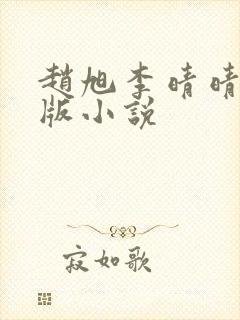 趙旭李晴晴
版小說
寂如歌